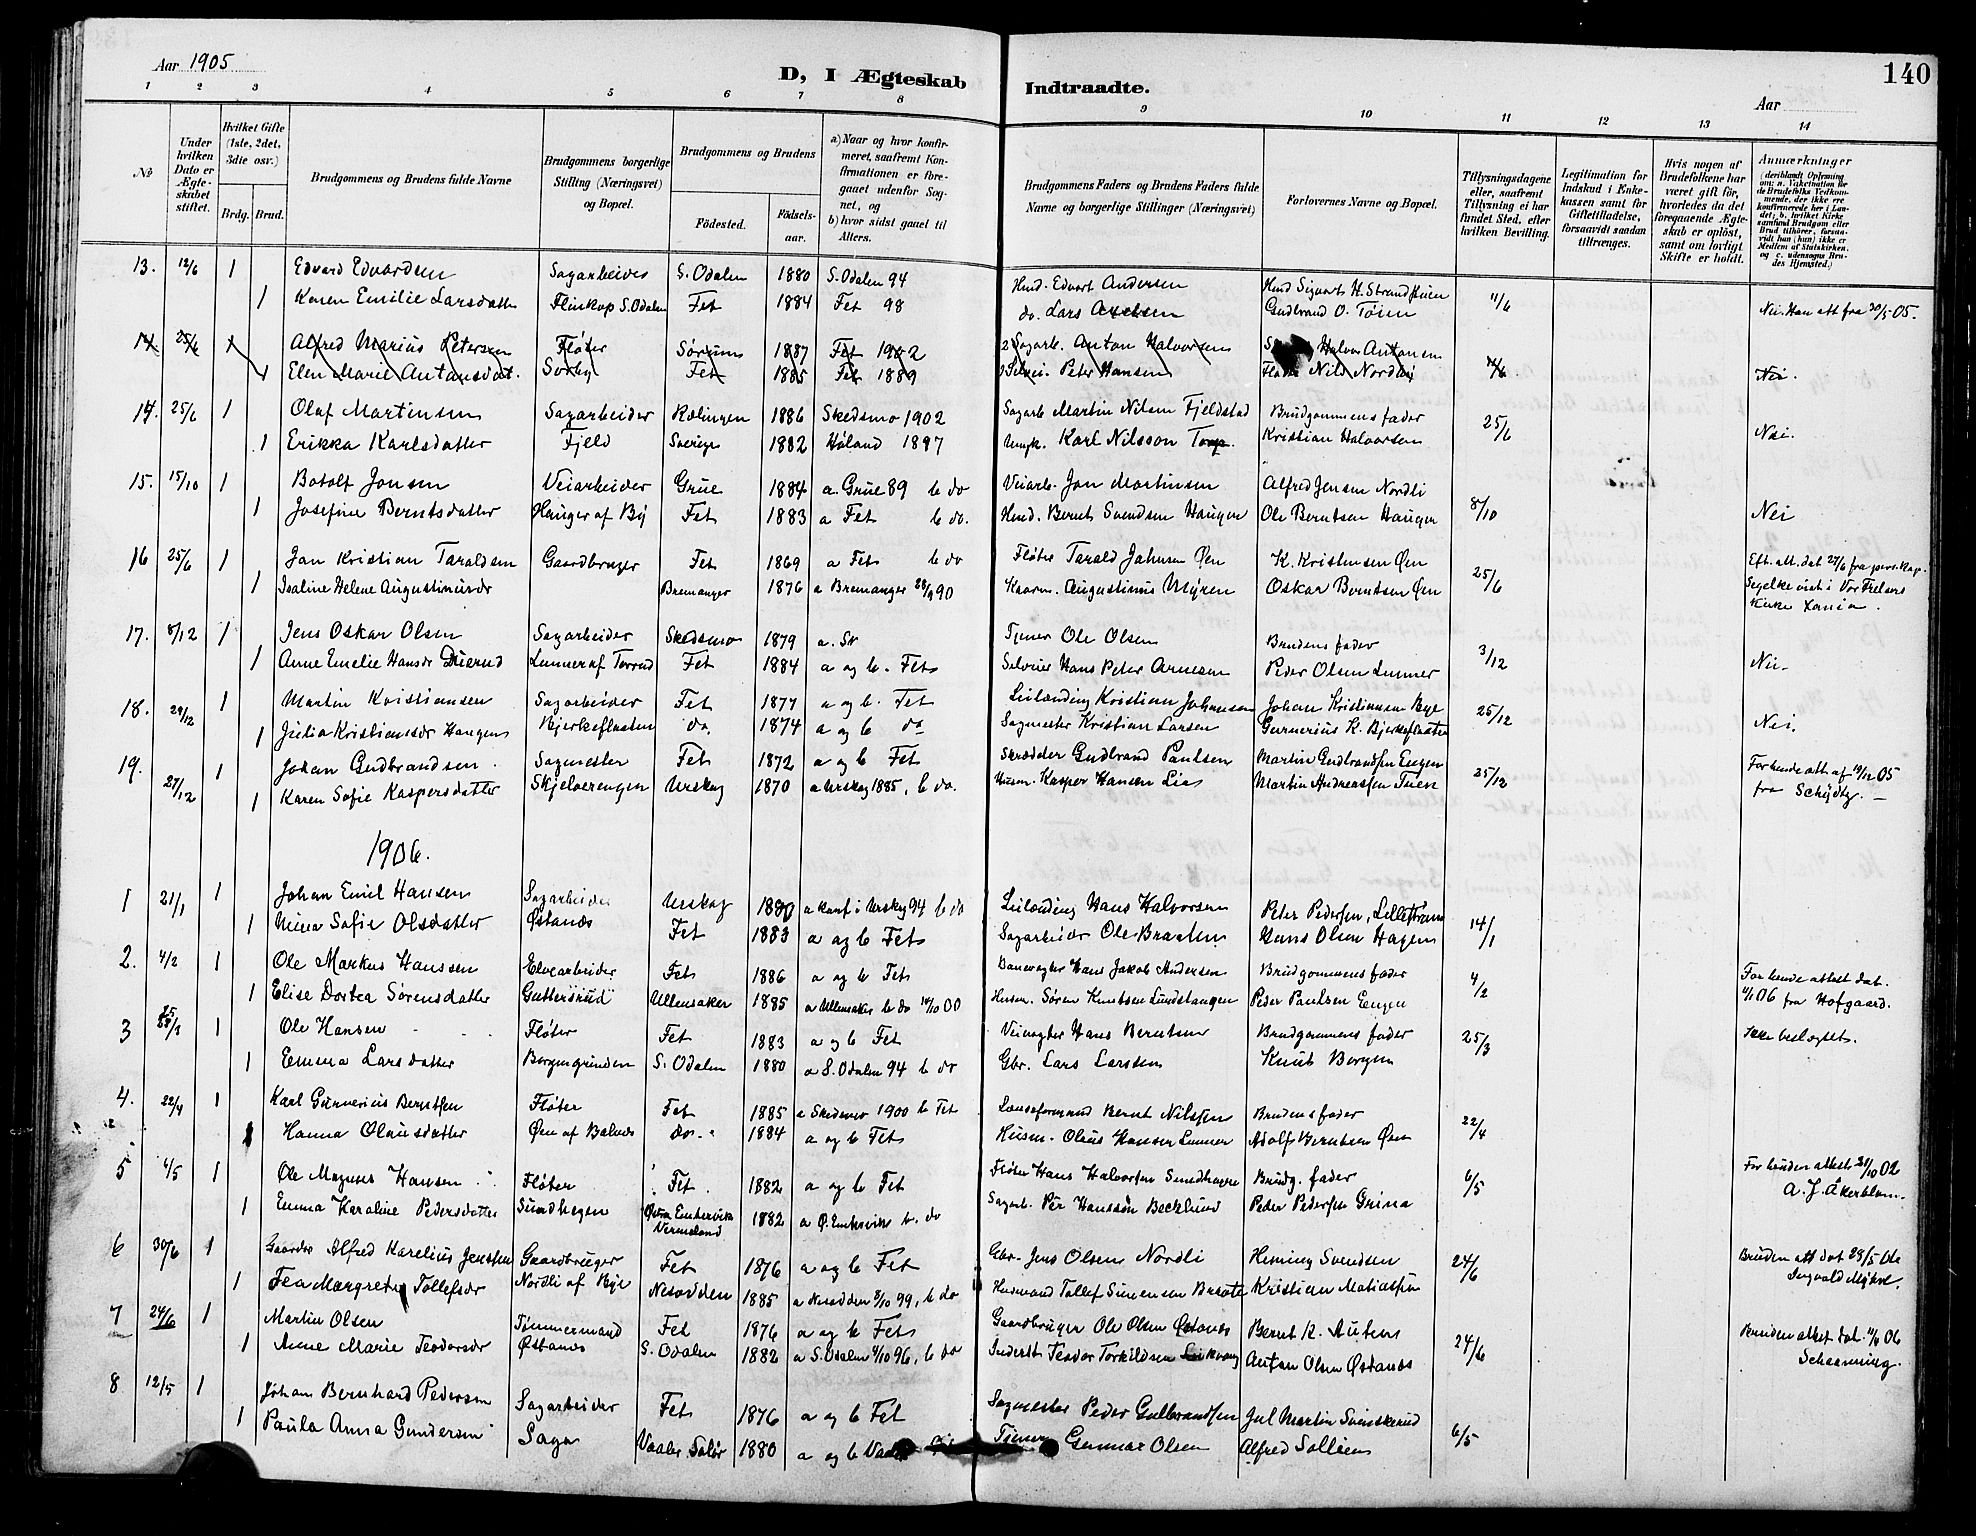 Aar 1905
D, I Ægteskab Indtraadte.
140
Aar
1 2 3 4 5 6 7 8 9 10 11 12 13 14
No
Under hvilken Dato er Ægteskabet stiftet.
Hvilket Gifte (1ste, 2det, 3die osv.)
Brdg. Brud.
Brudgommens og Brudens fulde Navne
Brudgommens borgerlige Stilling (Næringsvei) og Bopæl.
Brudgommens og Brudens
Födested. Födselsaar.
a) Naar og hvor konfirmeret, saafremt Konfirmationen er foregaaet udenfor Sognet, og
b) hvor sidst gaaet til Alters.
Brudgommens Faders og Brudens Faders fulde Navne og borgerlige Stillinger (Næringsvei)
Forlovernes Navne og Bopæl.
Tillysningsdagene eller, saafremt Tillysning ei har fundet Sted, efter hvilken Bevilling.
Legitimation for Indskud i Enkekassen samt for Giftetilladelse, forsaavidt saadan tiltrænges.
Hvis nogen af Brudefolkene har været gift før, hvorledes da det foregaaende Ægteskab er oplöst, samt om lovligt Skifte er holdt.
Anmærkninger (deriblandt Oplysning om: a. Vaccination for de Brudefolks Vedkommende, der ikke ere konfirmerede her i Landet; b. hvilket Kirkesamfund Brudgom eller Brud tilhörer, forsaavidt han (hun) ikke er Medlem af Statskirken, og c. udensogns Brudes Hjemsted.)
13. 12/6 1 Edvard Edvardsen Sagarbeider S. Odalen 1880 S. Odalen 94 Hmd. Edvart Andersen Hmd Sigvart H. Strandhuen 11/6 Nei. Han att fra 30/5 05.
1 Karen Emilie Larsdatter Flinkop S. Odalen Fet 1884 Fet 98 do. Lars Axelsen Gudbrand O. Tøien
14. 25/6 1 Alfred Marius Petersen Fløter Sørum 1887 Fet 1902 Sagarb. Anton Halvorsen Halvor Antonsen
1 Elen Marie Antonsdat. Sørby Fet 1885 Fet 1889 Selvei. Peter Hansen Nils Nordli 11/6 Nei.
14. 25/6 1 Olaf Martinsen Sagarbeider Rælingen 1886 Skedsmo 1902 Sagarb Martin Nilsen Fjeldstad Brudgommens fader 25/6
1 Erikka Karlsdatter Fjeld Sverige 1882 Høland 1897 Karl Nilsson Torp. Kristian Halvorsen Nei.
15. 15/10 1 Botolf Jonsen Veiarbeider Grue 1884 a. Grue 89 b do Veiarb. Jon Martinsen Alfred Jensen Nordli 8/10
1 Josefine Berntsdatter Hauger af By Fet 1883 a Fet b do. Hmd. Bernt Svendsen Haugen Ole Berntsen Haugen Nei
16 25/6 1 Jan Kristian Taraldsen Gaardbruger Fet 1869 a Fet b do Fløter Tarald Johnsen Øen K. Kristensen Øen 25/6 Eft. att. dat 27/6 fra pers. kap.
1 Isaline Helene Augustinusdr Bremanger 1876 a Bremanger 28/9 90 Augustinus Myren Oskar Berntsen Øen Segelke viet i Vor Frelsers Kirke Xania.
17. 8/12 1 Jens Oskar Olsen Sagarbeider Skedsmo 1879 a. Sk Tjener Ole Olsen Brudens fader 3/12
1 Anne Emelie Hansdr Duerud Lunner af Torrud Fet 1884 a og b. Fet Selveier Hans Peter Arnesen Peder Olsen Lunner Nei.
18. 29/12 1 Martin Kristiansen Sagarbeider Fet 1877 a og b. Fet Leilænding Kristian Johansen Johan Kristiansen Bye 25/12
1 Julia Kristiansdr Haugen Bjerkeflaaten do. 1874 a og b do Sagmester Kristian Larsen Gunnerius K. Bjerkeflaaten Nei.
19. 27/12 1 Johan Gudbrandsen Sagmester Fet 1872 a og b Fet Skrædder Gudbrand Paulsen Martin Gudbrandsen Engen 25/12 For hende att. af 19/12 05
1 Karen Sofie Kaspersdatter Skjelverengen Urskog 1870 a Urskog 1885, b do. Husm. Kasper Hansen Lia Martin Andreassen Tuen fra Schydtz.
1906.
1 21/1 1 Johan Emil Hansen Sagarbeider Urskog 1880 a konf i Urskog 94 b do Leilænding Hans Halvorsen Peter Pedersen, Lillestrøm 14/1
1 Mina Sofie Olsdatter Østanes Fet 1883 a og b Fet Sagarbeider Ole Braaten Hans Olsen Hagen
2. 4/2 1 Ole Markus Hanssen Elvearbeider Fet 1886 a og b Fet Banevogter Hans Jakob Andersen Brudgommens fader 4/2 For hende attest dat.
1 Elise Dortea Sørensdatter Guttersrud Ullensaker 1885 a Ullensaker b do 14/10 00 Husm. Søren Knutsen Lundstangen Peder Paulsen Engen 4/1 06 fra Hofgaard.
3 25/3 1 Ole Hansen Fløter Fet 1883 a og b Fet Veivogter Hans Berntsen Brudgommens fader 25/3 Ikke beslegtet.
1 Emma Larsdatter Borgengrinden S. Odalen 1880 a S. Odalen 94 b do Gbr. Lars Larssen Knut Borgen
4. 22/4 1 Karl Gunnerius Berntsen Fløter Fet 1885 a Skedsmo 1900 b Fet Lændseformand Bernt Nilsen Brudens fader 22/4
1 Hanna Olausdatter Øen af Balnes do. 1884 a og b Fet Husm. Olaus Hansen Lunner Adolf Berntsen Øen
5 6/5 1 Ole Magnus Hansen Fløter Fet 1882 a og b Fet Fløter Hans Halvorsen Sundhagen Brudg. fader 6/5 For bruden attest 21/10 02
1 Emma Karoline Pedersdatter Sundhagen Østra Emtervik Vermeland 1882 a Ø. Emtervik b. do Sagarb. Per Hansson Becklund Peder Pedersen Grina A. J. Åkerblom.
6 30/6 1 Gaardbr Alfred Karelius Jensen Gaardbruger Fet 1876 a og b Fet Gbr. Jens Olsen Nordli Heming Svendsen 24/6 Bruden att dat 29/5 06
1 Tea Margrethe Tollefsdr Nordli af Bye Nesodden 1885 a Nesodden 8/10 99, b do Husmand Tollef Simensen Braate Kristian Matiassen Ingvald Mykel.
7 24/6 1 Martin Olsen Tømmermand Fet 1876 a og b Fet Gaardbruger Ole Olsen Østanes Bernt K. Autun 24/6 Bruden attest dat. 11/6 06
1 Anne Marie Teodorsdr Østanes S. Odalen 1882 a S. Odalen 4/10 96, b do Inderst Teodor Torkildsen Anton Olsen Østanes Schaanning.
8 12/5 1 Johan Bernhard Pedersen Sagarbeider Fet 1876 a og b Fet Sagmester Peder Gulbrandsen Jul Martin Svenskerud 6/5
1 Paula Anna Gundersen Saga Vaaler Solør 1880 a og b Vaaler Tjener Gunnar Olsen Alfred Sollien